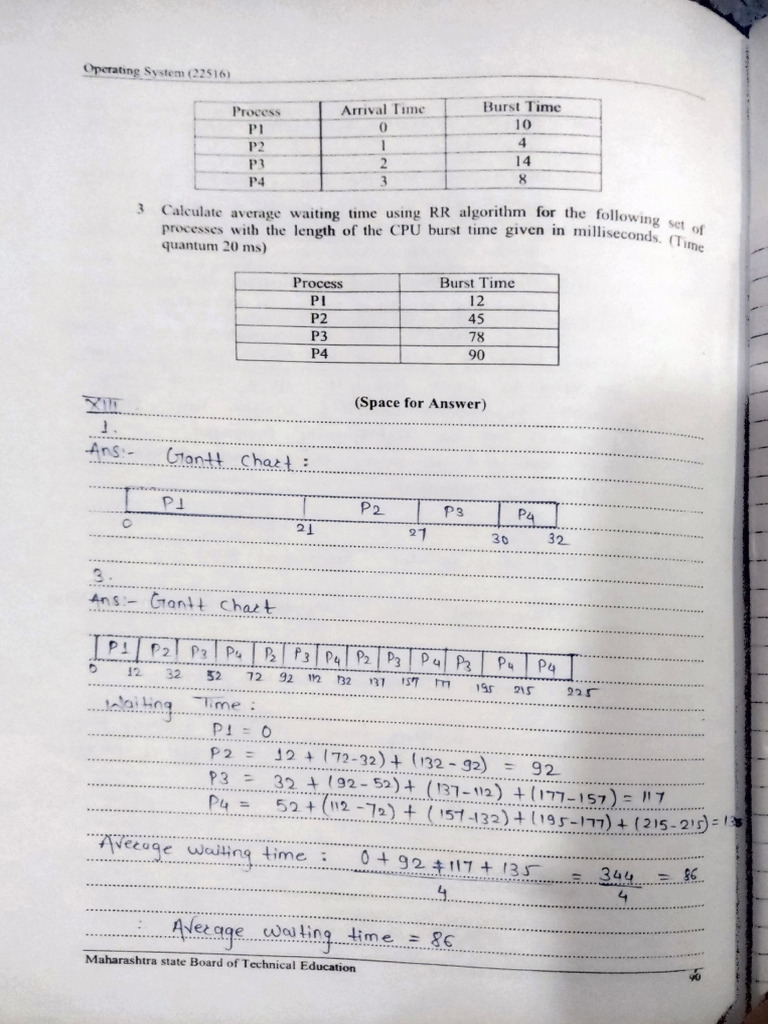 Operating System (22516)
Process Arrival Time Burst Time
P1 0 10
P2 1 4
P3 2 14
P4 3 8
3 Calculate average waiting time using RR algorithm for the following set of
processes with the length of the CPU burst time given in milliseconds. (Time
quantum 20 ms)
Process Burst Time
P1 12
P2 45
P3 78
P4 90
XIII (Space for Answer)
1.
Ans:- Gantt chart :
P1 P2 P3 P4
0 21 27 30 32
3.
Ans:- Gantt chart
P1 P2 P3 P4 P2 P3 P4 P2 P3 P4 P3 P4 P4
0 12 32 52 72 92 112 132 137 157 177 195 215 225
Waiting Time :
P1 = 0
P2 = 12 + (72-32) + (132 - 92) = 92
P3 = 32 + (92-52) + (137-112) + (177-157) = 117
P4 = 52 + (112 -72) + (157-132) + (195-177) + (215-215) = 135
Average waiting time : 0 + 92 + 117 + 135 / 4 = 344 / 4 = 86
∴ Average waiting time = 86
Maharashtra state Board of Technical Education 90